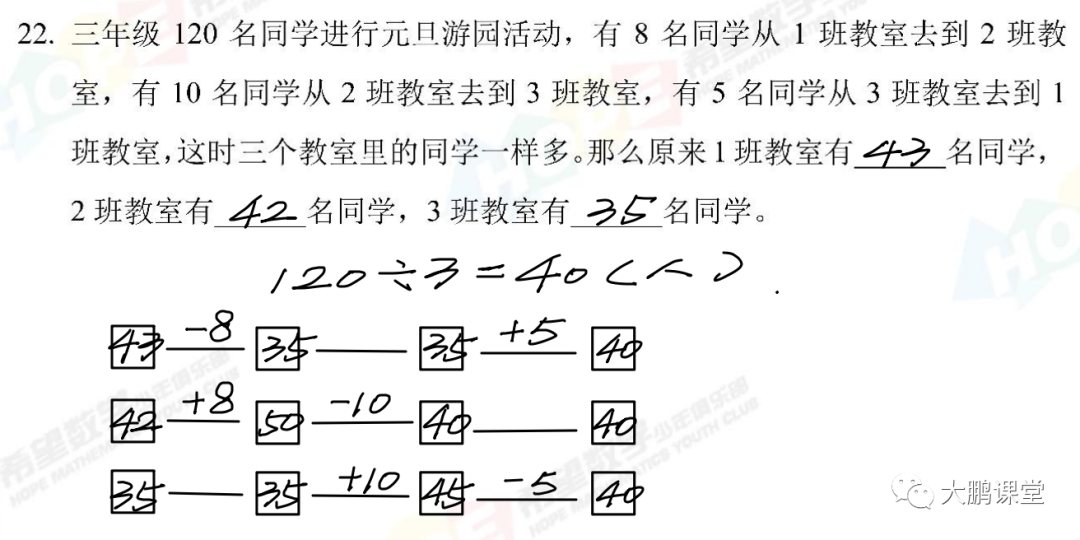 22. 三年级 120 名同学进行元旦游园活动，有 8 名同学从 1 班教室去到 2 班教
室，有 10 名同学从 2 班教室去到 3 班教室，有 5 名同学从 3 班教室去到 1
班教室，这时三个教室里的同学一样多。那么原来 1 班教室有 43 名同学，
2 班教室有 42 名同学，3 班教室有 35 名同学。
120÷3=40(人)
43 -8 35 35 +5 40
42 +8 50 -10 40 40
35 35 +10 45 -5 40
希望数学少年俱乐部
HOPE MATHEMATICS YOUTH CLUB
大鹏课堂